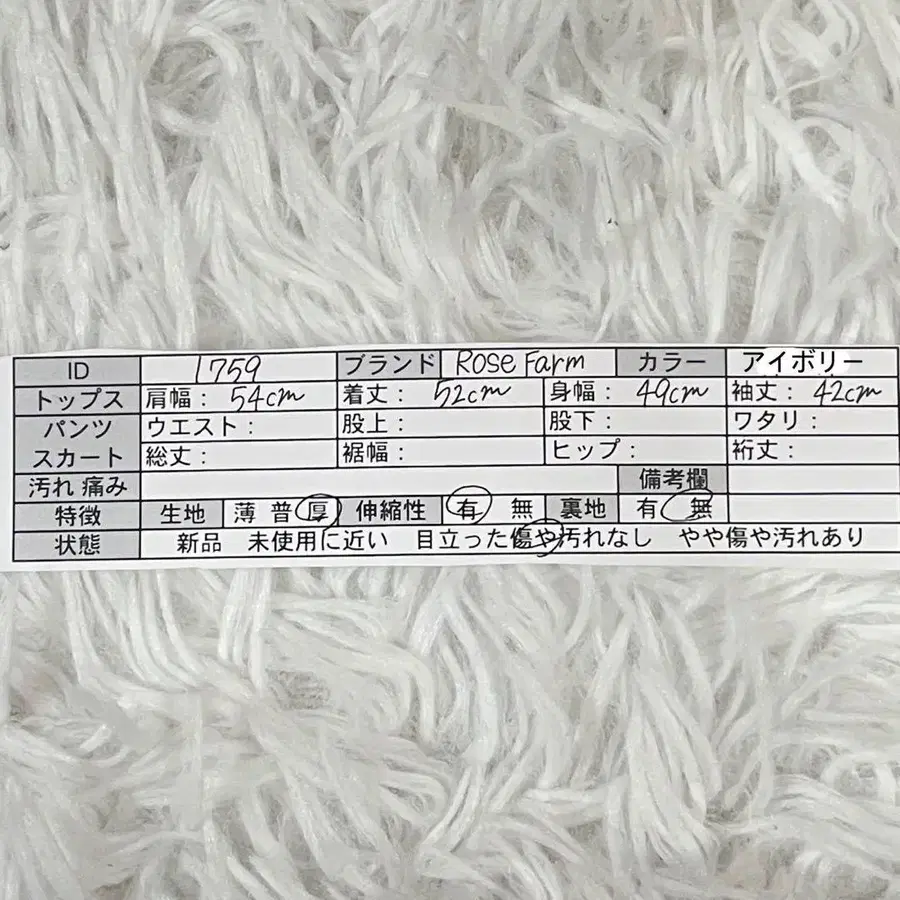 ID 1759 ブランド Rose Farm カラー アイボリー
トップス 肩幅： 54cm 着丈： 52cm 身幅： 49cm 袖丈： 42cm
パンツ ウエスト： 股上： 股下： ワタリ：
スカート 総丈： 裾幅： ヒップ： 裄丈：
汚れ 痛み 備考欄
特徴 生地 薄 普 厚 伸縮性 有 無 裏地 有 無
状態 新品 未使用に近い 目立った傷や汚れなし やや傷や汚れあり